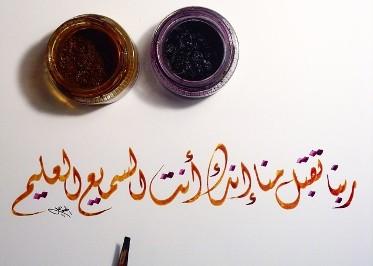 ربنا تقبل منا إنك أنت السميع العليم